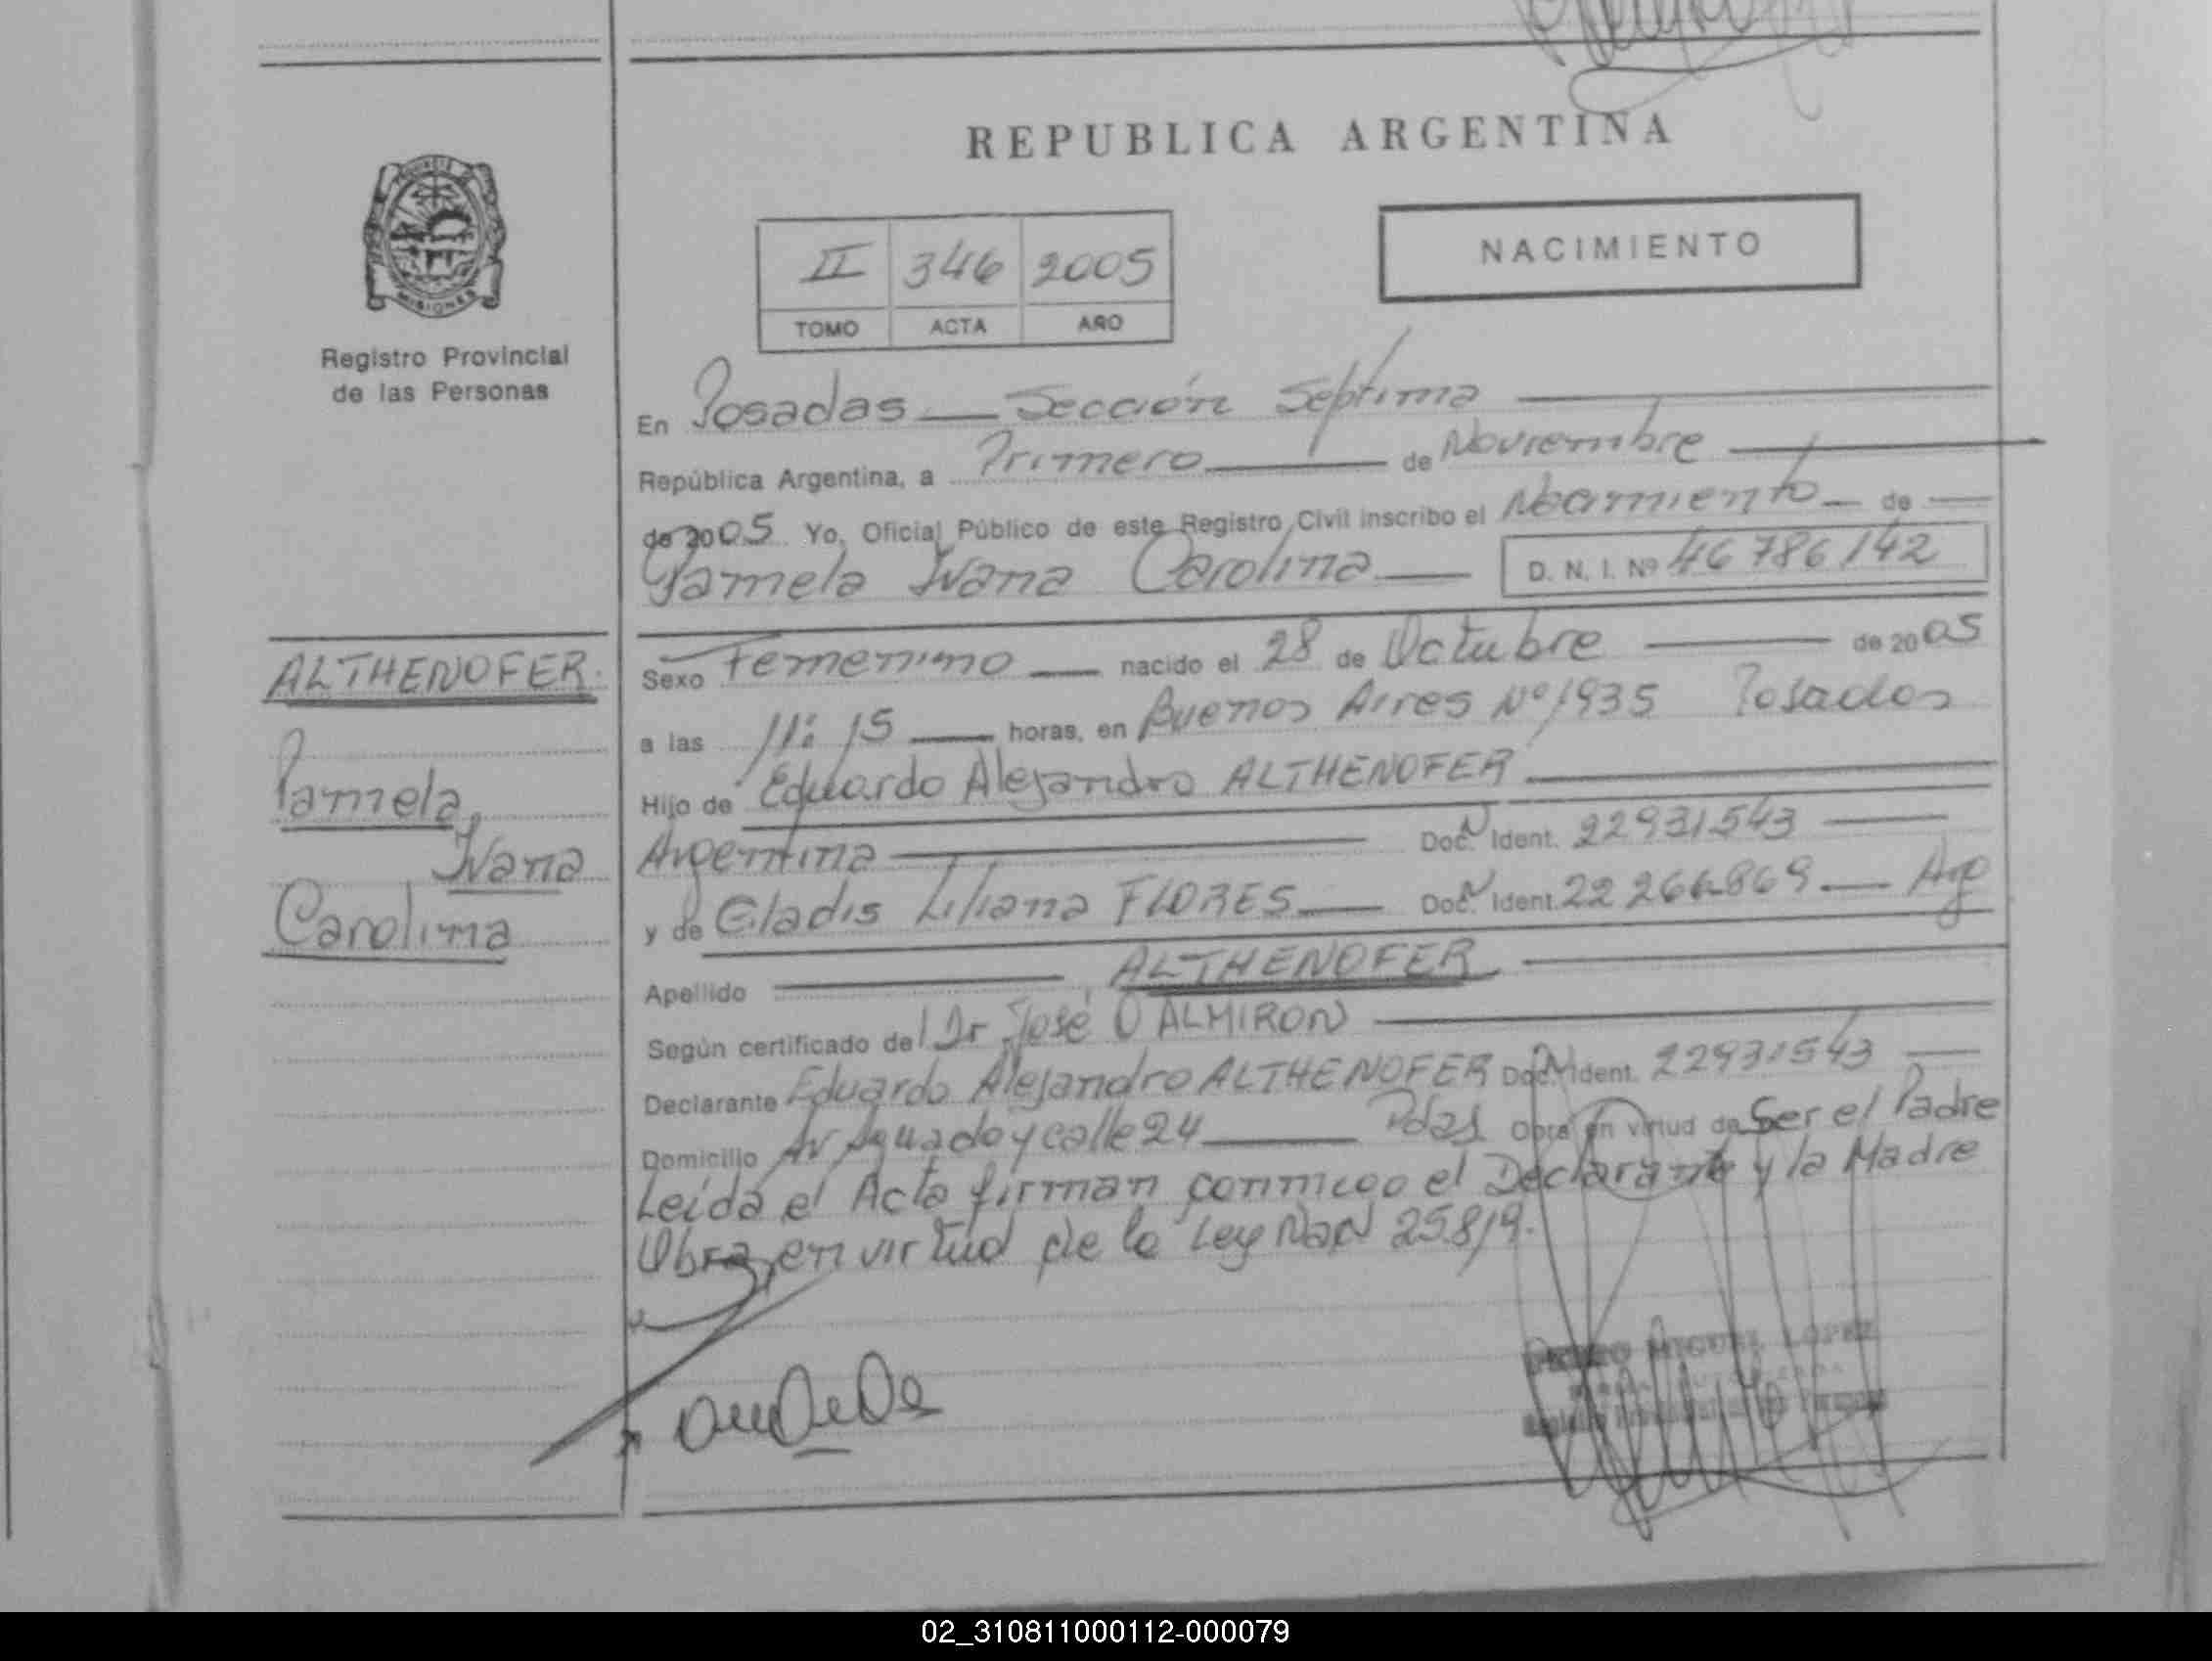 REPUBLICA ARGENTINA
PROVINCIA DE
MISIONES
Registro Provincial
de las Personas
II 346 2005
TOMO ACTA AÑO
NACIMIENTO
En Posadas — Sección Septima
República Argentina, a Primero de Noviembre
de 2005 Yo, Oficial Público de este Registro Civil inscribo el Nacimiento de
Pamela Ivana Carolina D. N. I. Nº 46786142
ALTHENOFER
Pamela
Ivana
Carolina
Sexo Femenino nacido el 28 de Octubre de 2005
a las 11:15 horas, en Buenos Aires Nº 1935 Posadas
Hijo de Eduardo Alejandro ALTHENOFER
Argentina Doc. N Ident. 22931543
y de Gladis Liliana FLORES Doc. N Ident. 22266869 — Arg
Apellido ALTHENOFER
Según certificado del Dr José O ALMIRON
Declarante Eduardo Alejandro ALTHENOFER Doc. N Ident. 22931543
Domicilio Av Aguado y calle 24 Pdas Obra en virtud de Ser el Padre
Leída el Acta firman conmigo el Declarante y la Madre
Obra en virtud de la Ley Nac N 25.819.
MIGUEL LOPEZ
02_310811000112-000079